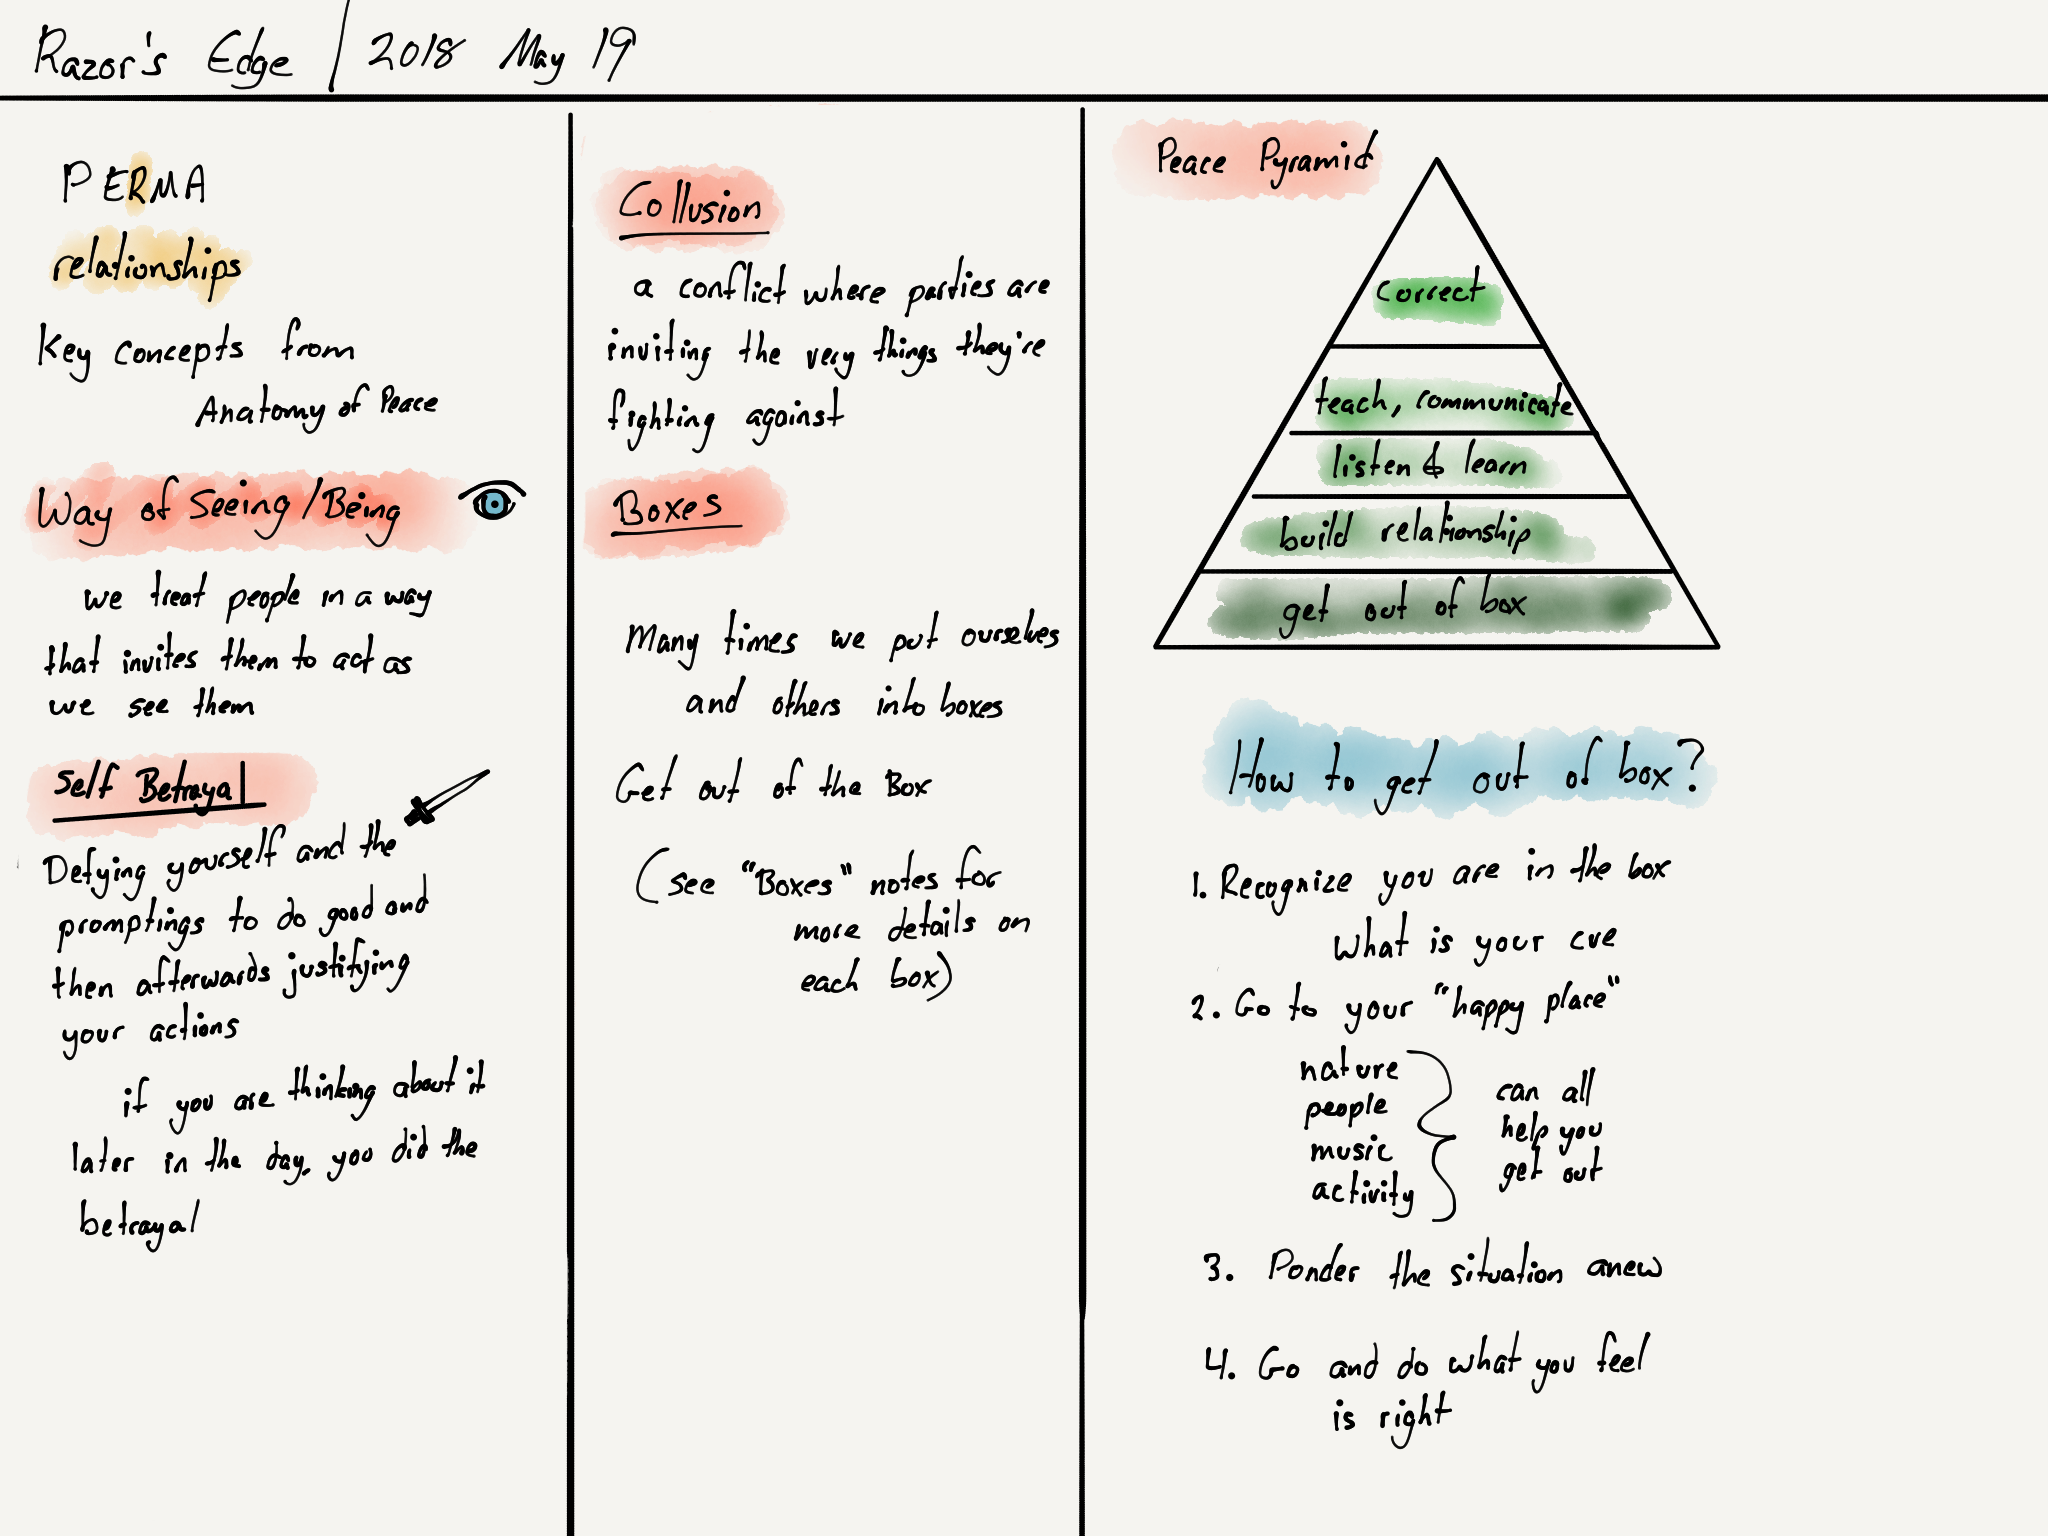 Razor's Edge / 2018 May 19
PERMA
relationships
Key concepts from
Anatomy of Peace
Way of Seeing/Being
we treat people in a way
that invites them to act as
we see them
Self Betrayal
Defying yourself and the
promptings to do good and
then afterwards justifying
your actions
if you are thinking about it
later in the day, you did the
betrayal
Collusion
a conflict where parties are
inviting the very things they're
fighting against
Boxes
Many times we put ourselves
and others into boxes
Get out of the Box
(see "Boxes" notes for
more details on
each box)
Peace Pyramid
correct
teach, communicate
listen & learn
build relationship
get out of box
How to get out of box?
1. Recognize you are in the box
What is your cue
2. Go to your "happy place"
nature
people
music
activity
can all
help you
get out
3. Ponder the situation anew
4. Go and do what you feel
is right